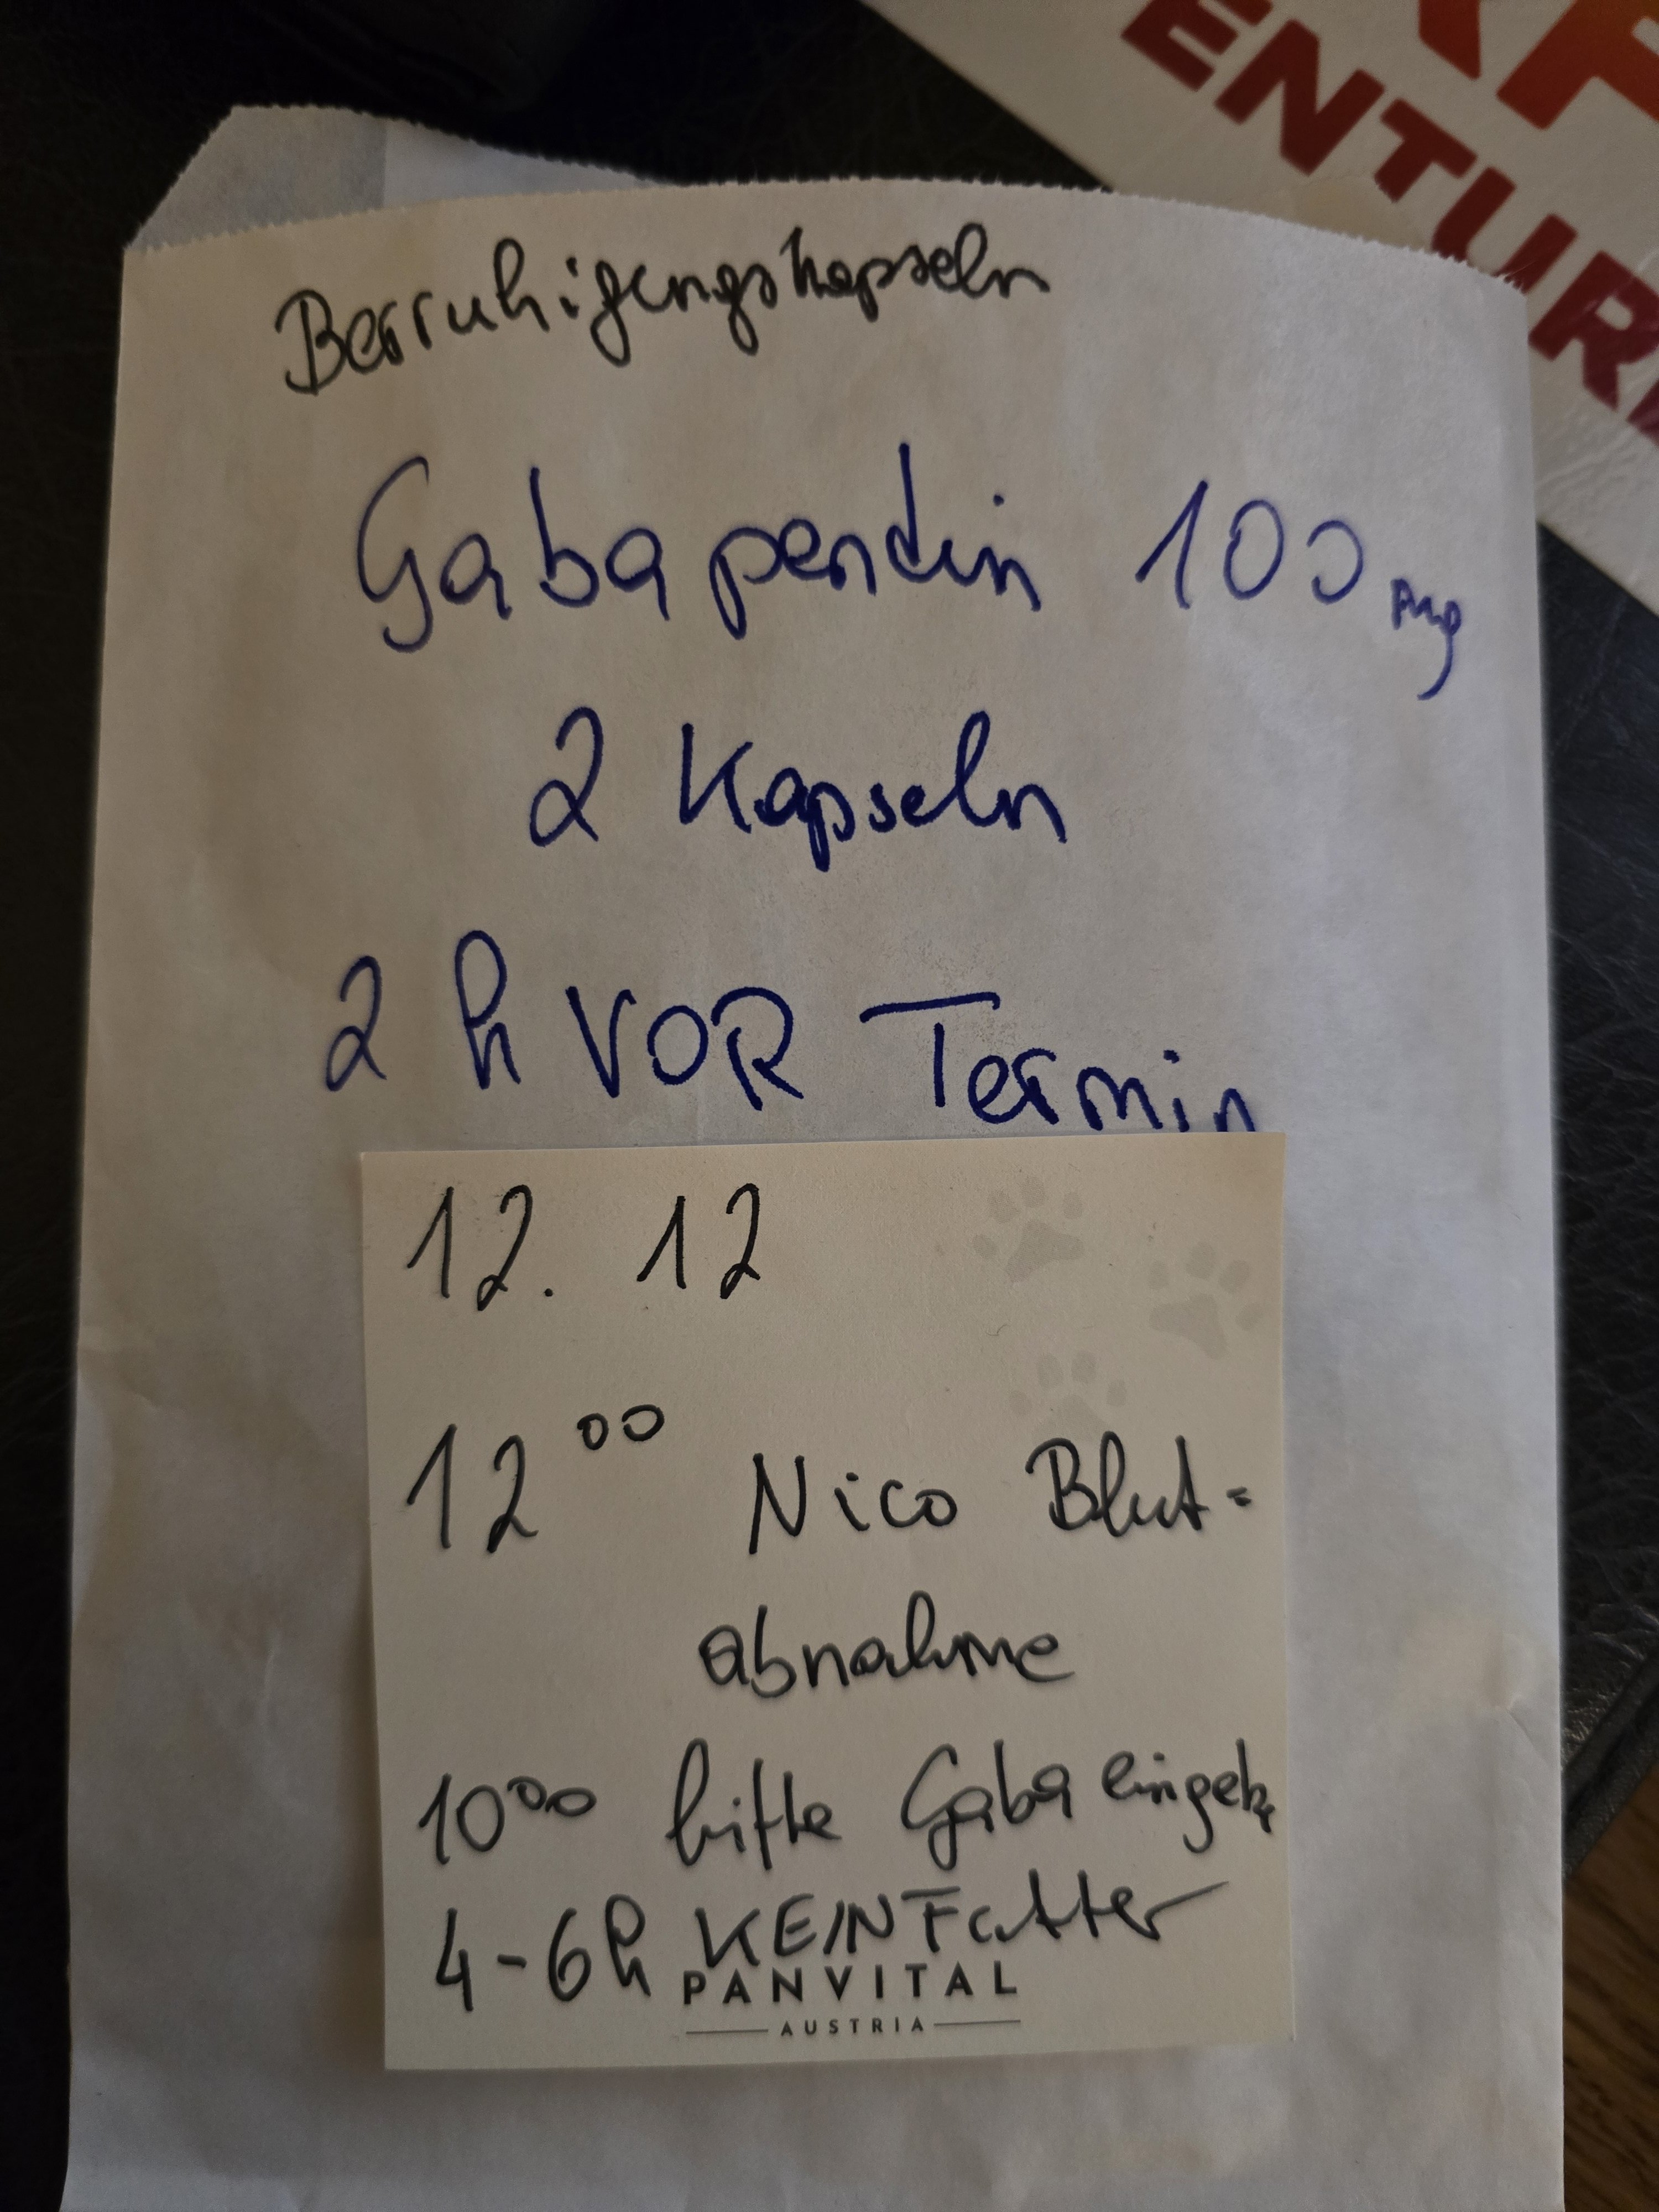 ENTUR
Berruhigungskapseln
Gabapentin 100 mg
2 Kapseln
2 h VOR Termin
12. 12
12⁰⁰ Nico Blut=
abnahme
10⁰⁰ bitte Gaba eingeb.
4-6h KEIN Futter
PANVITAL
AUSTRIA